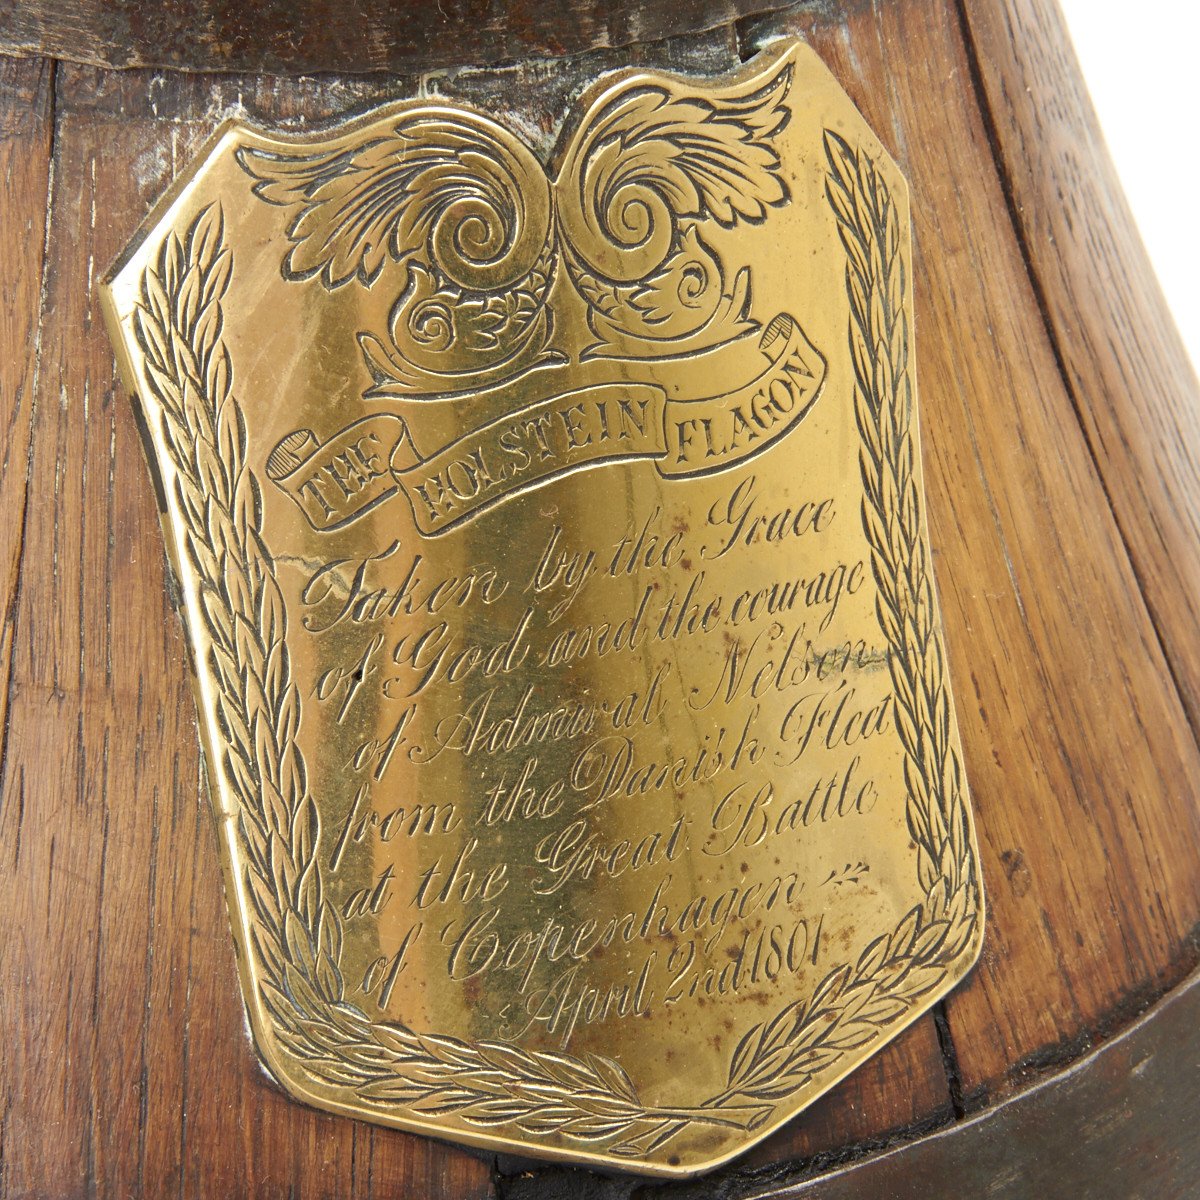 THE HOLSTEIN FLAGON
Taken by the Grace
of God and the courage
of Admiral Nelson
from the Danish Fleet
at the Great Battle
of Copenhagen
April 2nd. 1801